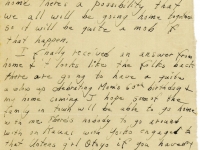 home. There's a possibility that
we all will be going home together
so it will be quite a mob if
that happens.
I finally received an answer from
home & it looks like the folks back
there are going to have a
celebrating Mom's 60th birthday &
my home coming I hope
family will be able to go home
with me there's nobody to go around
with on Kauai with
that girl Stays if you haven't